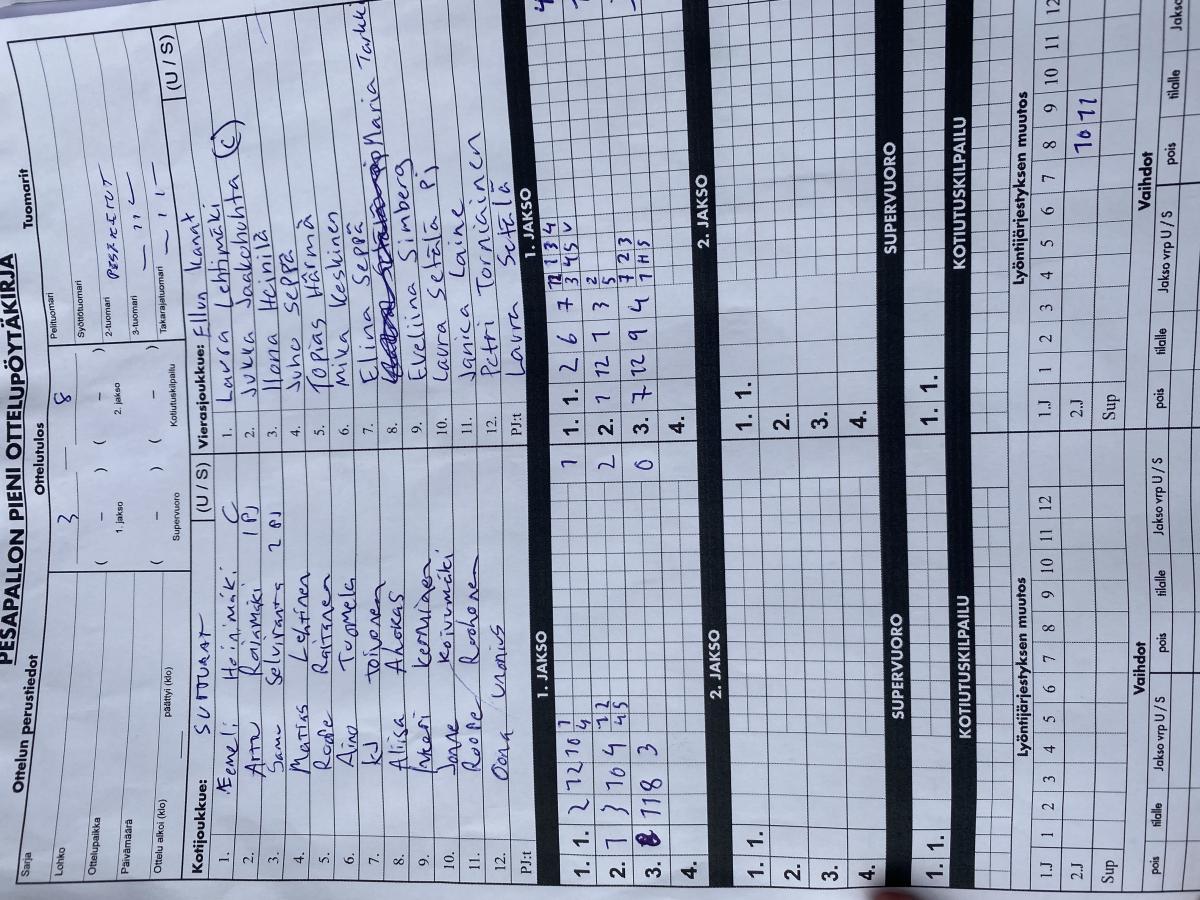 PESÄPALLON PIENI OTTELUPÖYTÄKIRJA
Ottelun perustiedot
Ottelutulos
Tuomarit
Sarja
Lohko
Ottelupaikka
Päivämäärä
Ottelu alkoi (klo)
päättyi (klo)
3 – 8
( – ) ( – )
1. jakso 2. jakso
( – ) ( – )
Supervuoro Kotiutuskilpailu
Pelituomari
Syöttötuomari
2-tuomari
3-tuomari
Takarajatuomari
Kotijoukkue: (U / S)
1. Eemeli Heinimäki C
2. Arttu Rajamäki 1 PJ
3. Samu Selviranta 2 PJ
4. Matias Lehtinen
5. Roope Raitanen
6. Aino Tuomela
7. KJ Toivonen
8. Aliisa Ahokas
9. Inkeri
10. Janne Koivumäki
11. Roope
12. Oona
PJ:t
Vierasjoukkue: Ellun kanat (U / S)
1. Laura Lehtimäki (C)
2. Jukka Jaakohuhta
3. Ilona Heinilä
4. Juho Seppä
5. Topias Härmä
6. Mika Keskinen
7. Elina Seppä
8. Maria Tarkki
9. Eveliina Simberg
10. Laura Setälä PJ
11. Janica Laine
12. Petri Torniainen
PJ:t Laura Setälä
1. JAKSO
1. 1. 2 12 10 1 1
4
2. 1 3 10 4 12 2
4 5
3. 11 8 3 0
4.
1. JAKSO
1. 1. 2 6 7 12 1 3 4
3 4 5 V
2. 1 12 1 3 2
5
3. 7 12 9 4 7 2 3
1 H 5
4.
2. JAKSO
1. 1.
2.
3.
4.
2. JAKSO
1. 1.
2.
3.
4.
SUPERVUORO
1. 1.
SUPERVUORO
1. 1.
KOTIUTUSKILPAILU
KOTIUTUSKILPAILU
Lyöntijärjestyksen muutos
1.J 1 2 3 4 5 6 7 8 9 10 11 12
2.J
Sup
Lyöntijärjestyksen muutos
1.J 1 2 3 4 5 6 7 8 9 10 11 12
2.J 10 11
Sup
Vaihdot
pois tilalle Jakso vrp U / S pois tilalle Jakso vrp U / S
Vaihdot
pois tilalle Jakso vrp U / S pois tilalle Jakso